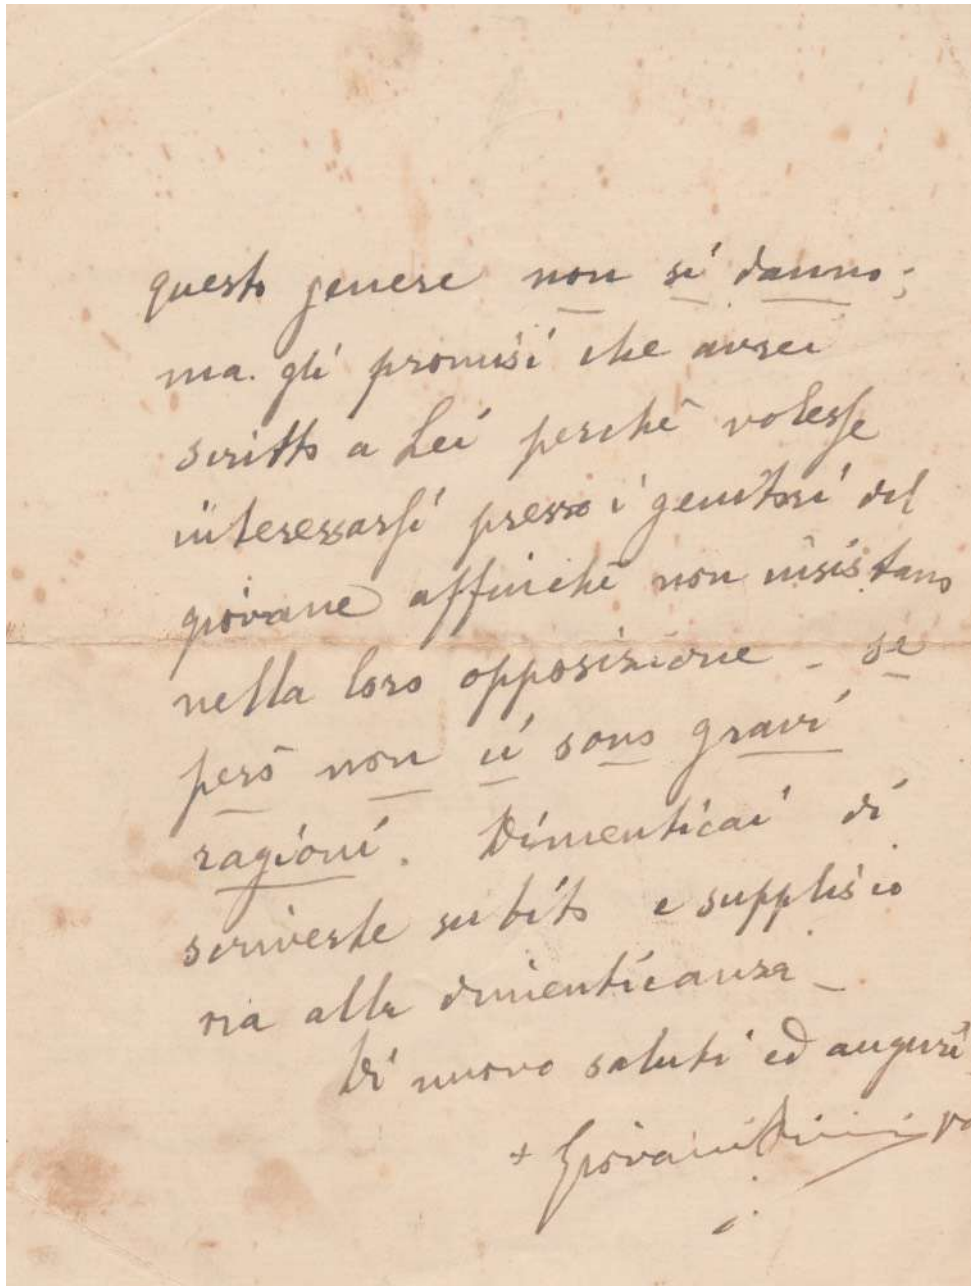 questo genere non si danno;
ma gli promisi che avrei
scritto a Lei perchè volesse
interessarsi presso i genitori del
giovane affinchè non insistano
nella loro opposizione - se
però non ci sono gravi
ragioni. Dimenticai di
scriverle subito e supplisco
ora alla dimenticanza -
Di nuovo saluti ed auguri
+ Giovanni